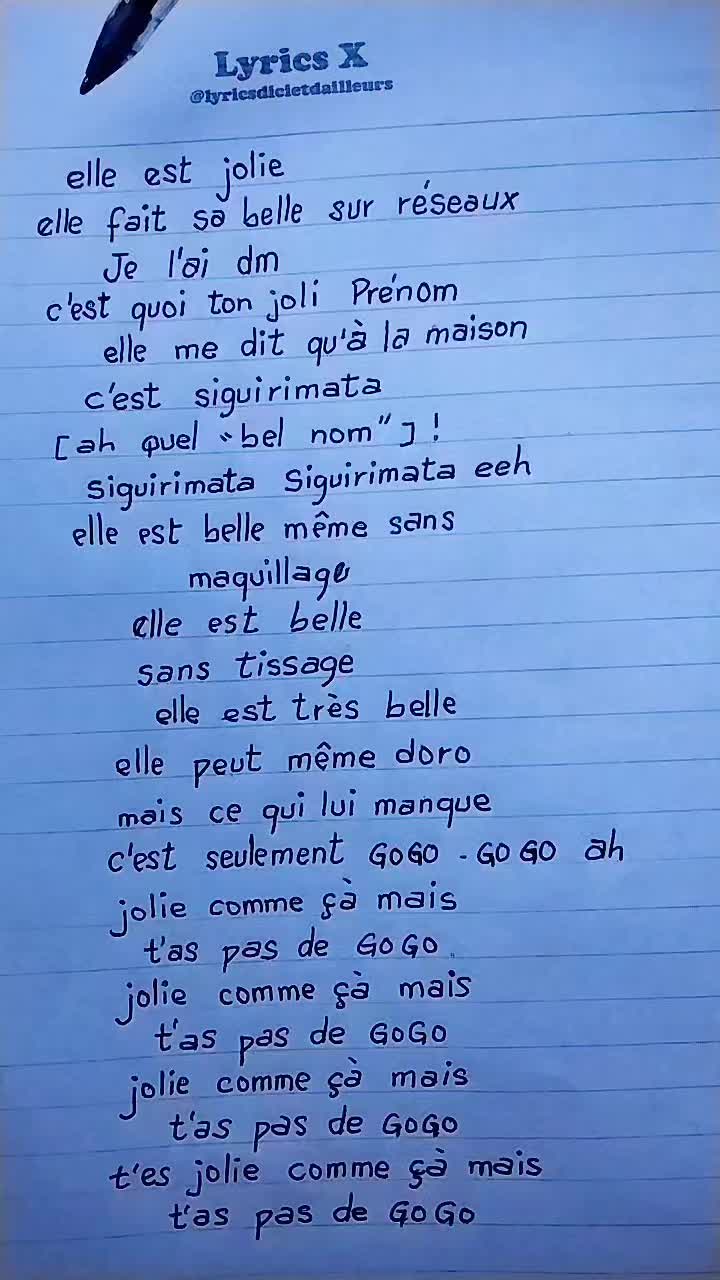 Lyrics X
@lyricsdicietdailleurs
elle est jolie
elle fait sa belle sur réseaux
Je l'ai dm
c'est quoi ton joli Prénom
elle me dit qu'à la maison
c'est siguirimata
[ah quel "bel nom"] !
Siguirimata Siguirimata eeh
elle est belle même sans
maquillage
elle est belle
sans tissage
elle est très belle
elle peut même doro
mais ce qui lui manque
c'est seulement GOGO - GO GO ah
jolie comme çà mais
t'as pas de GOGO.
jolie comme çà mais
t'as pas de GOGO
jolie comme çà mais
t'as pas de GOGO
t'es jolie comme çà mais
t'as pas de GOGO